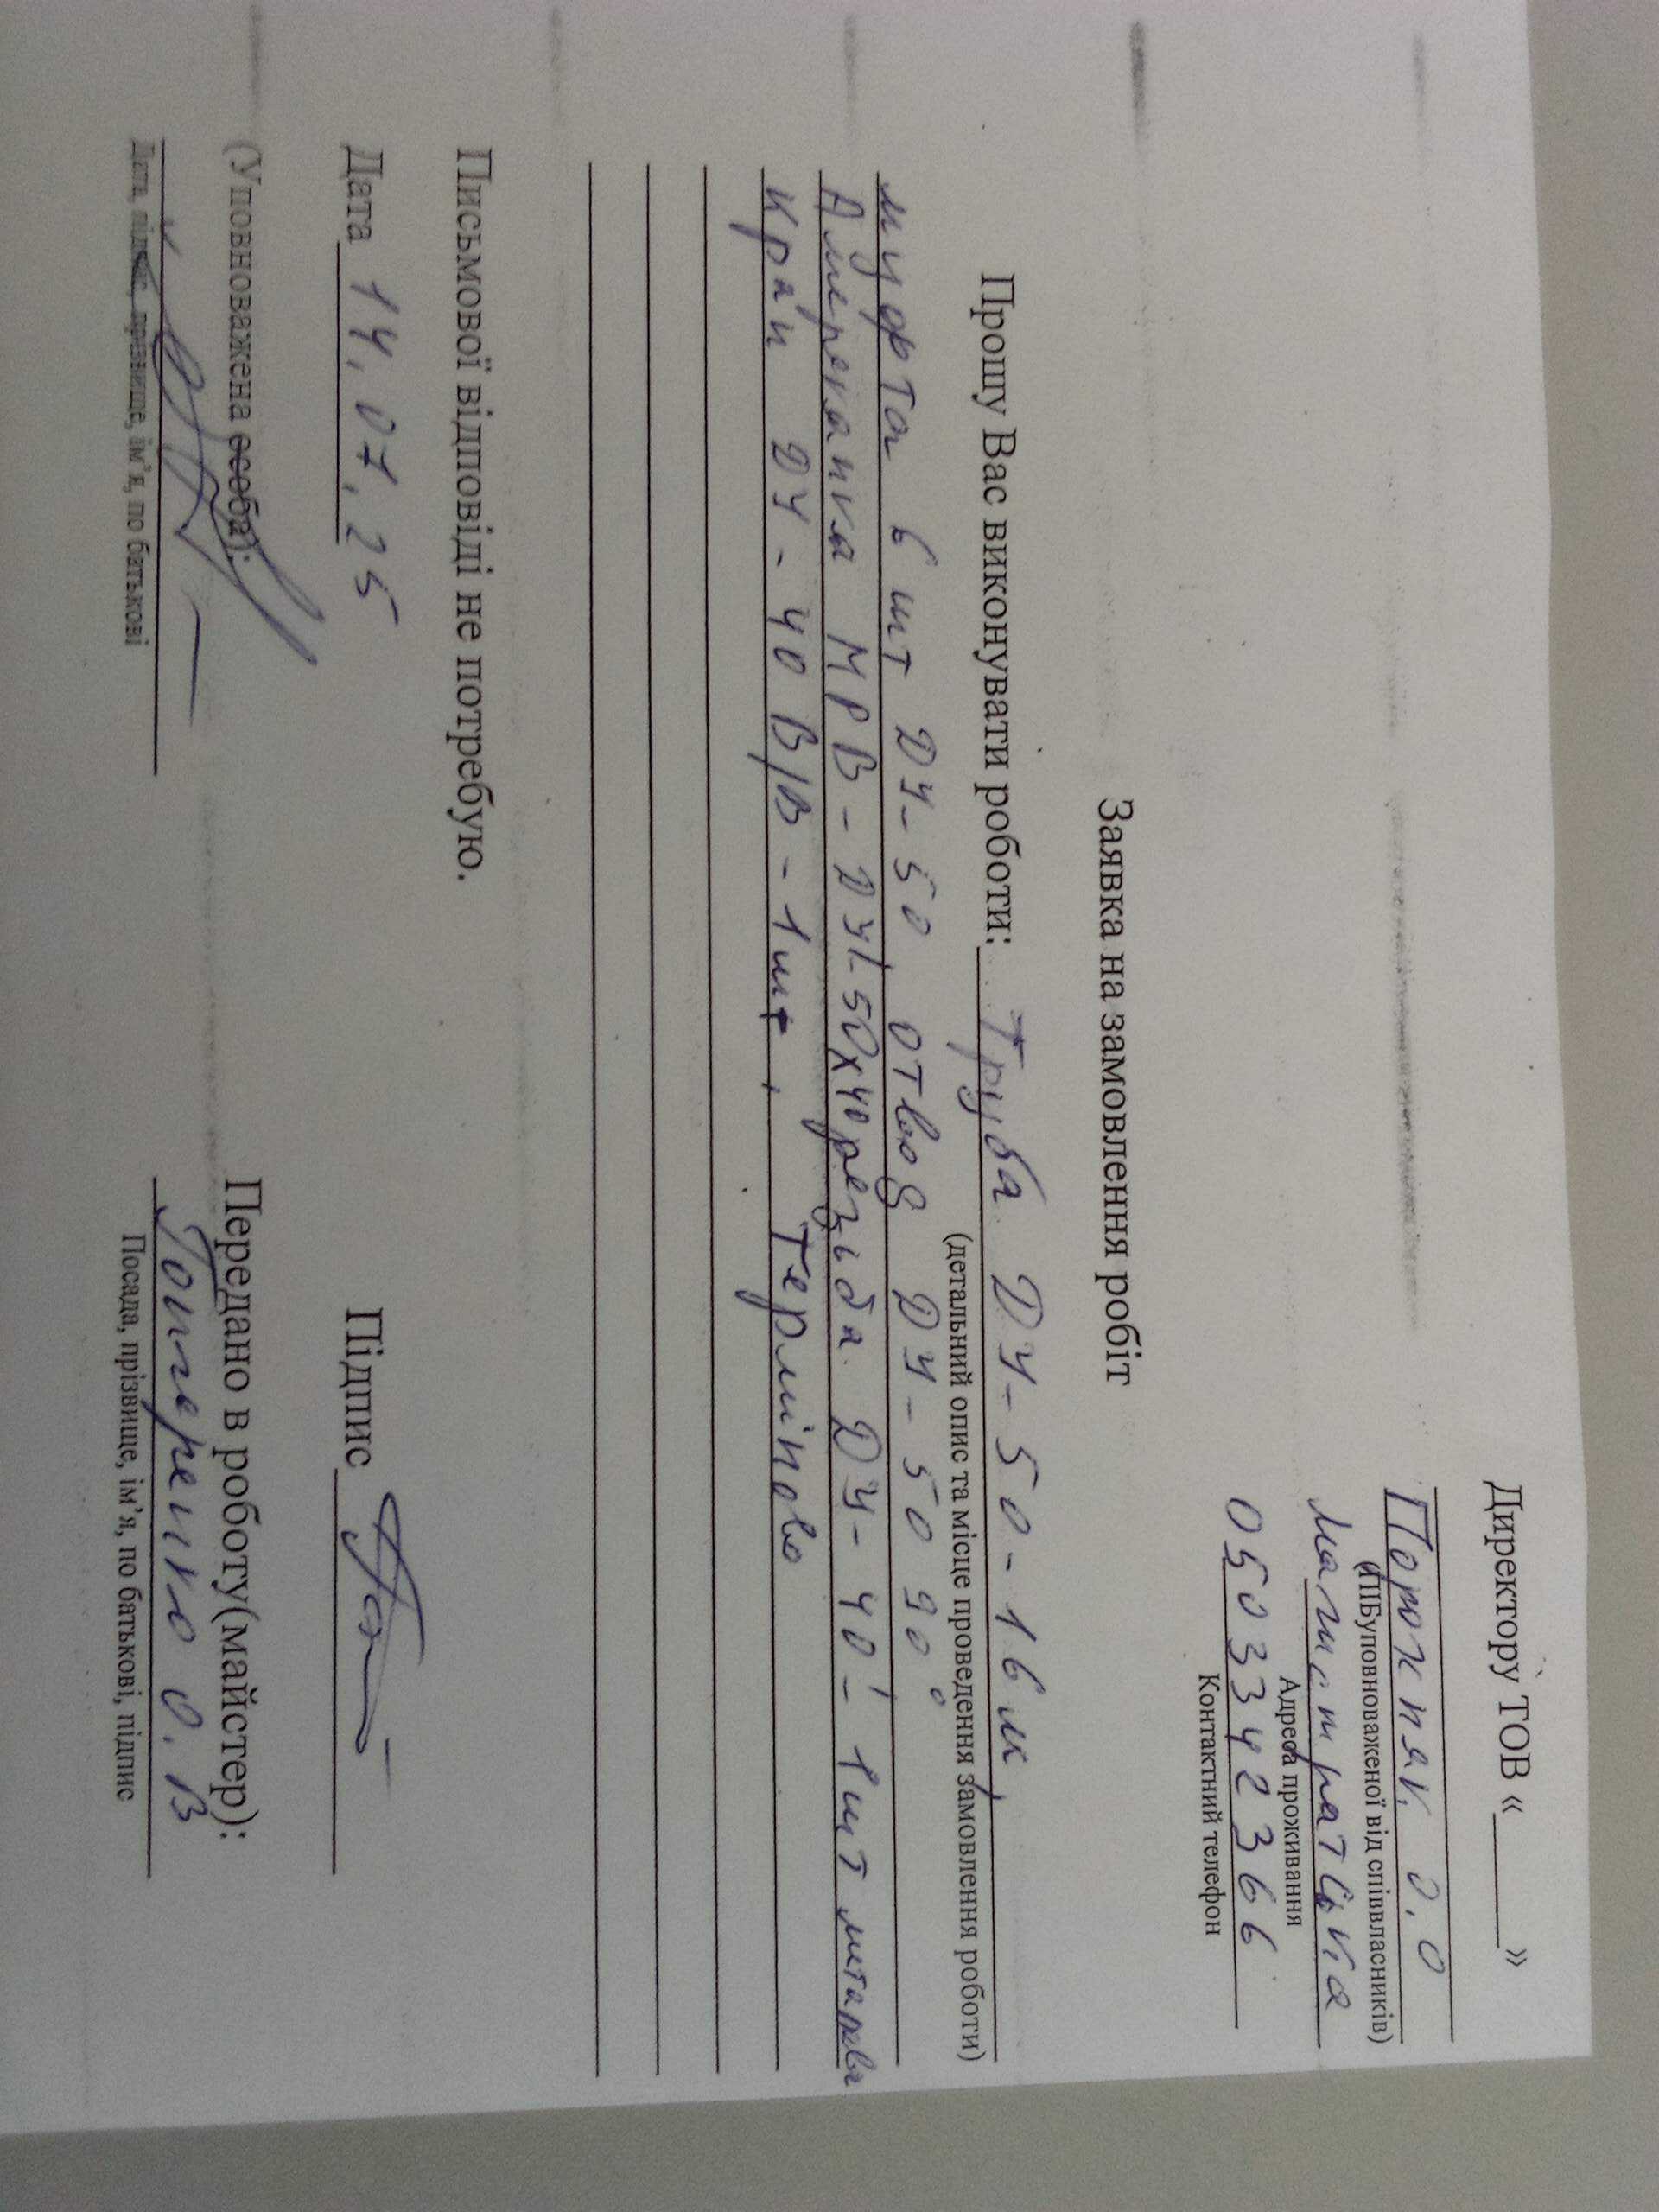 Директору ТОВ «______»
Порохняк О.О
(ПІБуповноваженої від співвласників)
Магистратська
Адреса проживання
0503342366
Контактний телефон
Заявка на замовлення робіт
Прошу Вас виконувати роботи: Труба ДУ-50-16м
(детальний опис та місце проведення замовлення роботи)
муфта 6 шт ДУ-50 отвод ДУ-50 90°
Американка МРВ-ДУ-50х40 різьба ДУ-40-1шт
Кран ДУ-40 В/В-1шт, Терміново
Письмової відповіді не потребую.
Дата 14.07.25 Підпис
(Уповноважена особа): Передано в роботу(майстер):
О.В
Дата, підпис, прізвище, ім’я, по батькові Посада, прізвище, ім’я, по батькові, підпис